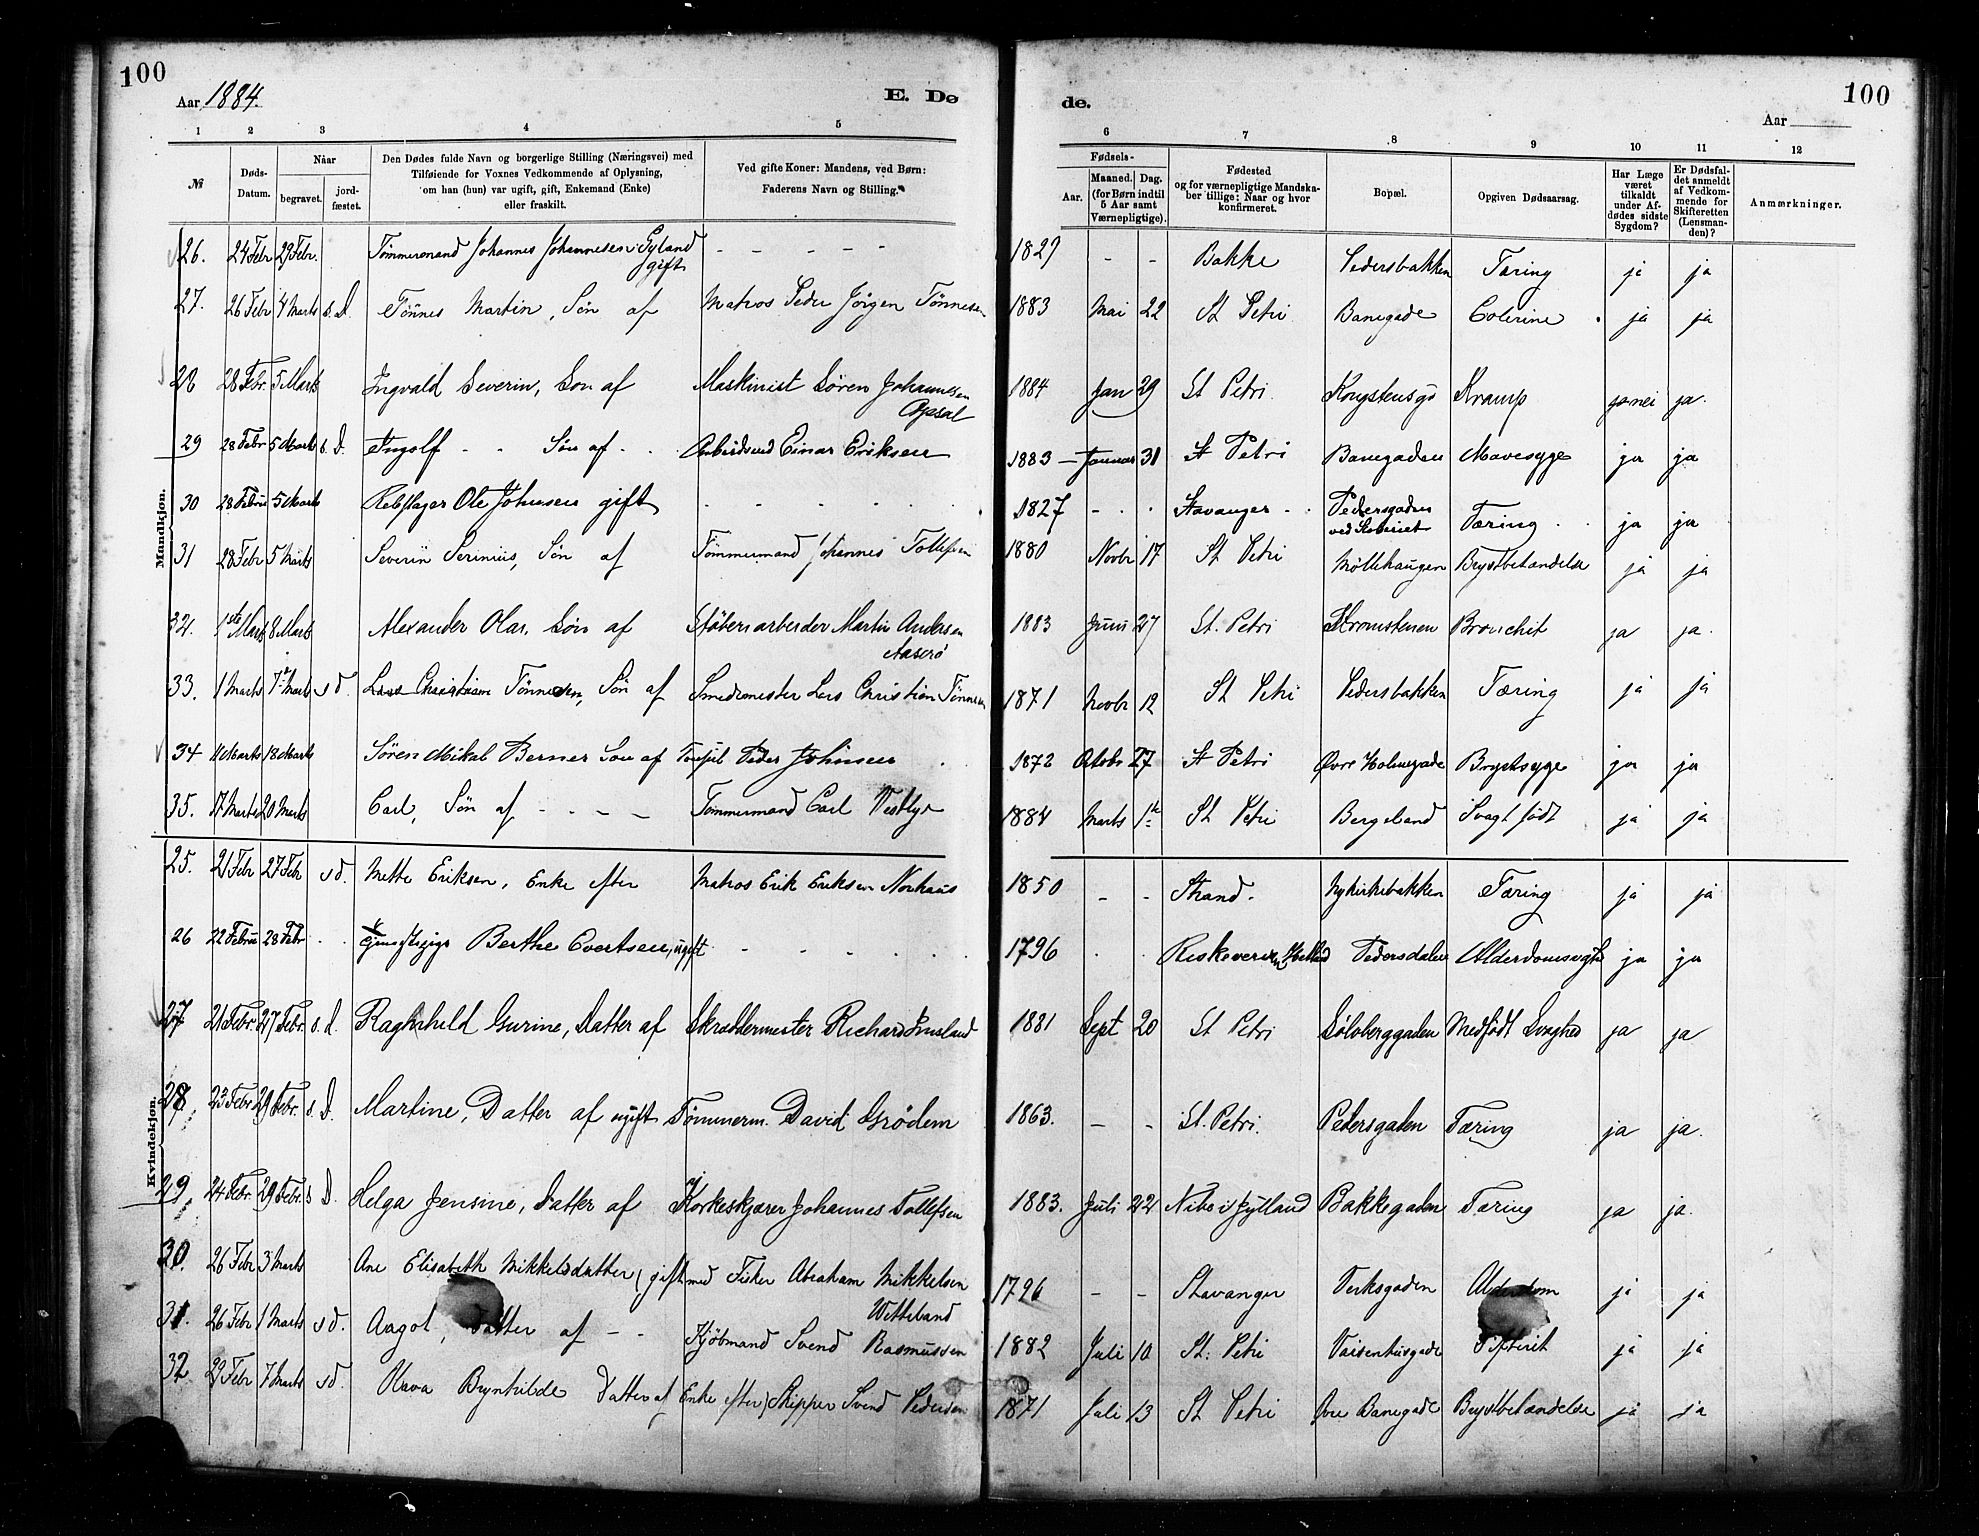 100
100
Aar 1884.
E. Dø
de.
Aar
1 2 3 4 5
6 7 8 9 10 11 12
№
Døds-Datum.
Naar
begravet.
jord-fæstet.
Den Dødes fulde Navn og borgerlige Stilling (Næringsvei) med
Tilføiende for Voxnes Vedkommende af Oplysning,
om han (hun) var ugift, gift, Enkemand (Enke)
eller fraskilt.
Ved gifte Koner: Mandens, ved Børn:
Faderens Navn og Stilling.
Fødsels-
Aar.
Maaned. Dag.
(for Børn indtil
5 Aar samt
Værnepligtige).
Fødested
og for værnepligtige Mandska-
ber tillige: Naar og hvor
konfirmeret.
Bopæl.
Opgiven Dødsaarsag.
Har Læge
været
tilkaldt
under Af-
dødes sidste
Sygdom?
Er Dødsfal-
det anmeldt
af Vedkom-
mende for
Skifteretten
(Lensman-
den)?
Anmærkninger.
Mandkjøn.
26. 24 Febr 29 Febr. Tømmermand Johannes Johannesen Gyland gift - - - - - 1827 - - Bakke Pedersbakken Tæring ja ja
27. 26 Febr 4 Marts s.d. Tönnes Martin, Sön af Matros Peder Jörgen Tönnesen 1883 Mai 22 St Petri Banegade Colerine ja ja
28 28 Febr. 5 Marts Ingvald Severin, Søn af Maskinist Søren Johannesen Opsal 1884 Jan 29 St Petri Kongstensgd Kramp ja nei ja.
29 28 Febr 5 Marts s.d. Ingolf - - Søn af - . Arbeidsmd Einar Eriksen 1883 - Januar 31 St Petri Banegaden Mavesyge ja ja
30 28 Februr 5 Marts Rebslager Ole Johnsen gift - . . . . 1827 - . . Stavanger - . Pedersgaden ved Taering . . ja ja
31 28 Febr 5 Marts Severin Serinius, Sön af Tömmermand Johannes Tollefsen 1880 Novbr 17 St Petri Möllehaugen Brystbetændelse ja ja
32. 1ste Marts 8 Marts Alexander Olai, Søn af Støberiarbeider Martin Andersen Aaserø 1883 Juni 27 St. Petri Bronchit ja ja.
33. 1 Marts 7de Marts s d. Lars Christian Tönnesen, Sön af Smedmester Lars Christian Tönnesen 1871 Novbr 12 St Petri Pedersbakken Tæring ja ja
34 11 Marts 18 Marts Søren Mikal Berner Søn af Peder Johnsen . 1872 Octobr 27 St Petri Øvre Holmegade Brystsyge ja ja
35. 17 Marts 20 Marts Carl, Sön af - - - - Tömmermand Carl Vestlye 1884 Marts 1te St Petri Bergeland Svagt födt ja ja
Kvindekjøn.
25. 21 Febr 27 Febr s d. Mette Eriksen, Enke efter Matros Erik Eriksen Norhaus 1850 - - Strand. Nykirkebakken Tæring ja ja
26 22 Februr 28 Febr . . Berthe Evertsen, ugift - - . . . . 1796 . . Pedersdalen ja ja
27 21 Febr. 27 Febr. s.d. Raghnhild Gurine, Datter af Skræddermester Richard Imsland 1881 Sept 20 St Petri Sølvberggaden Medfødt Svaghed ja ja
28, 23 Febr 29 Febr. s.d. Martine, Datter af ugift Tømmerm. David Grødem 1863. - - St. Petri. Pedersgaden Tæring ja ja.
29, 24 Febr. 29 Febr. s d. Helga Jensine, Datter af Korkeskjærer Johannes Tollefsen 1883. Juli 22 Nibe i Jylland Bakkegaden Tæring ja ja.
30. 26 Febr 3 Marts Ane Elisabeth Mikkelsdatter, gift med Fisker Abraham Mikkelsen Watteland 1796 - - Stavanger Verksgaden Alderdom ja ja
31. 26 Febr 1 Marts s d. Aagot, Datter af - - Kjöbmand Svend Rasmussen 1882 Juli 10 St. Petri Vaisenhusgade Difterit ja ja
32 29 Febr 7 Marts s d. Olava Bryntilde Datter af Enke efter Skipper Svend Pedersen 1871 Juli 13 St Petri Øvre Banegade Brystbetændelse ja ja